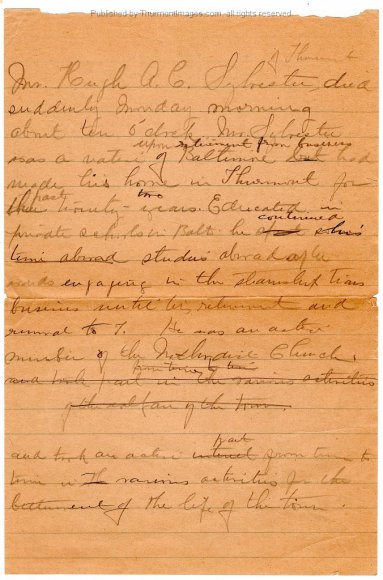 Published by Thurmontimages.com, all rights reserved.
of Thurmont
Mr. Hugh A. C. Sylvester, died
suddenly Monday morning
about ten o'clock. Mr. Sylvester
upon retirement from business
was a native of Baltimore but had
made his home in Thurmont for
past two
the twenty- years. Educated in
continued
private schools in Balt. he his
time abroad studies abroad after
wards engaging in the steamship trans
business until his retirement and
removal to T. He was an active
member of the Methodist Church,
from time to time
and took part in the various activities
of the welfare of the town.
part
and took an active interest from time to
time in various activities for the
betterment of the life of the town.